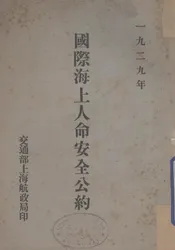 一九二九年
國際海上人命安全公約
交通部上海航政局印